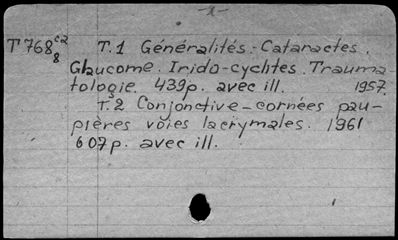 -1-
T 768 c2 T.1 Généralités - Cataractes.
8 Glaucome. Irido-cyclites. Trauma-
tologie. 439p. avec ill. 1957.
T.2 Conjonctive-cornées pau-
pières voies lacrymales. 1961
607p. avec ill.